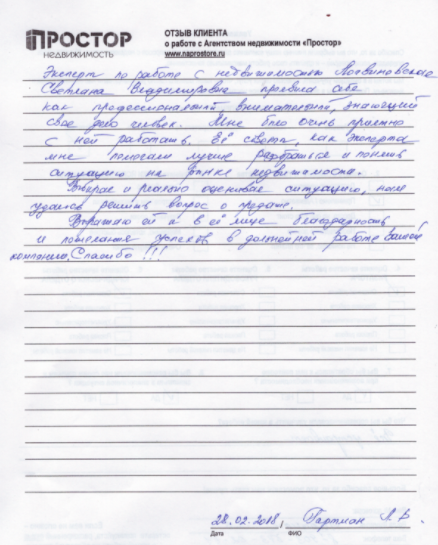 ПРОСТОР
НЕДВИЖИМОСТЬ
ОТЗЫВ КЛИЕНТА
о работе с Агентством недвижимости «Простор»
www.naprostore.ru
Эксперт по работе с недвижимостью
Светлана Владимировна проявила себя
как профессиональный, внимательный, знающий
свое дело человек. Мне было очень приятно
с ней работать. Её советы, как эксперта
мне помогли лучше разобраться и понять
ситуацию на рынке недвижимости.
и реально оценивая ситуацию, нам
удалось решить вопрос о продаже.
Выражаю ей и в её лице благодарность
и пожелания успехов в дальнейшей работе Вашей
компании. Спасибо !!!
28.02.2018, Гартман
Дата ФИО